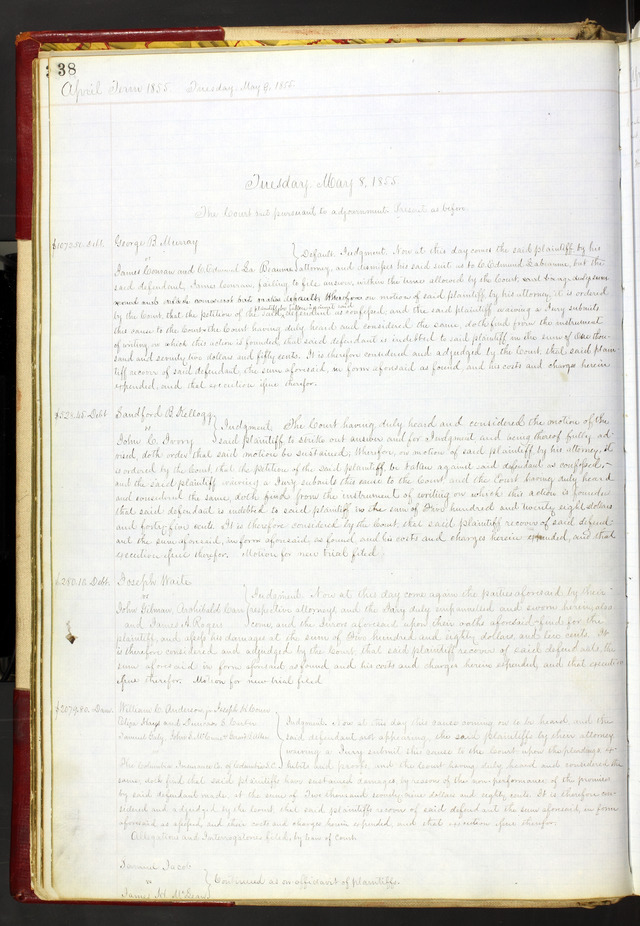 38
April Term 1855 Tuesday, May 8, 1855
Tuesday, May 8, 1855
The Court met pursuant to adjournment. Present as before.
$1072.50 Debt. George B. Murray
vs } Default. Judgment. Now at this day comes the said plaintiff by his
James Conran and C. Edmund La Beaume attorney, and dismisses his said suit as to C. Edmund Labeaume, but the
said defendant, James Conran, failing to file answer, within the time allowed by the Court,
on motion of said plaintiff by his attorney, it is ordered
by the Court, that the petition of the said defendant as confessed, and the said plaintiff waiving a Jury submits
this cause to the Court and the Court having duly heard and considered the same, doth find from the instrument
of writing on which this action is founded, that said defendant is indebted to said plaintiff in the sum of One thou-
sand and seventy two dollars and fifty cents. It is therefore considered and adjudged by the Court, that said plain-
tiff recover of said defendant, the sum aforesaid, in form aforesaid as found, and his costs and charges herein
expended, and that execution issue therefor.
$528.45 Debt Sandford B. Kellogg
vs } Judgment. The Court having duly heard and considered the motion of the
John C. Ivory said plaintiff to strike out answer and for Judgment and being thereof fully ad-
vised, doth order that said motion be sustained; Wherefore, on motion of said plaintiff by his attorney, it
is ordered by the Court, that the petition of the said plaintiff, be taken against said defendant as confessed,
and the said plaintiff waiving a Jury submits this cause to the Court, and the Court having duly heard
and considered the same, doth find from the instrument of writing on which this action is founded
that said defendant is indebted to said plaintiff in the sum of Five hundred and twenty eight dollars
and forty-five cents. It is therefore considered by the Court, that said plaintiff recover of said defend-
ant the sum aforesaid, in form aforesaid, as found, and his costs and charges herein expended, and that
execution issue therefor. Motion for new trial filed.
$280.10 Debt. Joseph Waite
vs } Judgment. Now at this day come again the parties aforesaid by their
John Gilman, Archibald Carr respective attorneys and the Jury duly empannelled and sworn herein, also
and James A. Rogers come, and the Jurors aforesaid upon their oaths aforesaid find for the
plaintiff, and assess his damages at the sum of Two hundred and eighty dollars, and ten cents. It
is therefore considered and adjudged by the Court, that said plaintiff recover of said defendants, the
sum aforesaid in form aforesaid as found and his costs and charges herein expended, and that execution
issue therefor. Motion for new trial filed
$2079.80. Dam. William C. Anderson, Joseph
} Judgment. Now at this day this cause coming on to be heard, and the
Samuel said defendant not appearing, the said plaintiffs by their attorney
waiving a Jury submit this cause to the Court upon the pleadings
The Columbia Insurance Co. and proofs, and the Court having duly heard and considered the
same, doth find that said plaintiffs have sustained damages by reason of the non-performance of the promises
by said defendant made, at the sum of Two thousand seventy nine dollars and eighty cents. It is therefore con-
sidered and adjudged by the Court that said plaintiffs recover of said defendant the sum aforesaid, in form
aforesaid as assessed, and their costs and charges herein expended, and that execution issue therefor.
Allegations and Interrogatories filed by leave of Court.
Jacob
vs } Continued as on affidavit of plaintiffs.
James M.